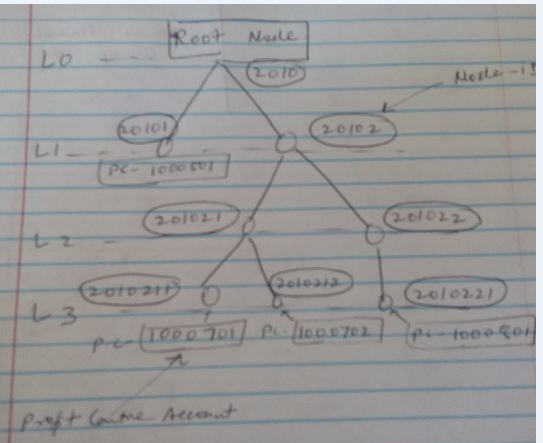 Root Node
L0
2010
Node-id
20101
20102
L1
PC-1000501
201021
201022
L2
2010211
2010212
2010221
L3
PC-1000701
PC-1000702
PC-1000801
Profit Centre Account